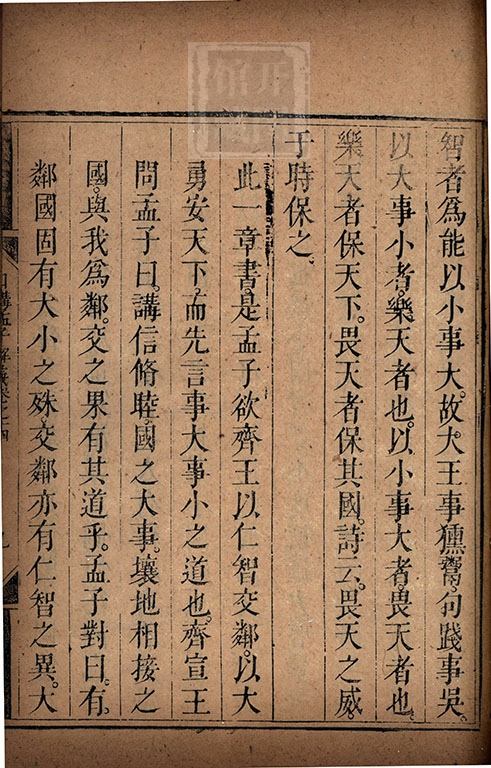 智者爲能以小事大。故大王事獯鬻。句踐事吳。
以大事小者。樂天者也。以小事大者。畏天者也。
樂天者保天下。畏天者保其國。詩云。畏天之威。
于時保之。
此一章書。是孟子欲齊王以仁智交鄰。以大
勇安天下。而先言事大事小之道也。齊宣王
問孟子曰。講信脩睦。國之大事。壤地相接之
國。與我爲鄰。交之果有其道乎。孟子對曰。有。
鄰國固有大小之殊。交鄰亦有仁智之異。大